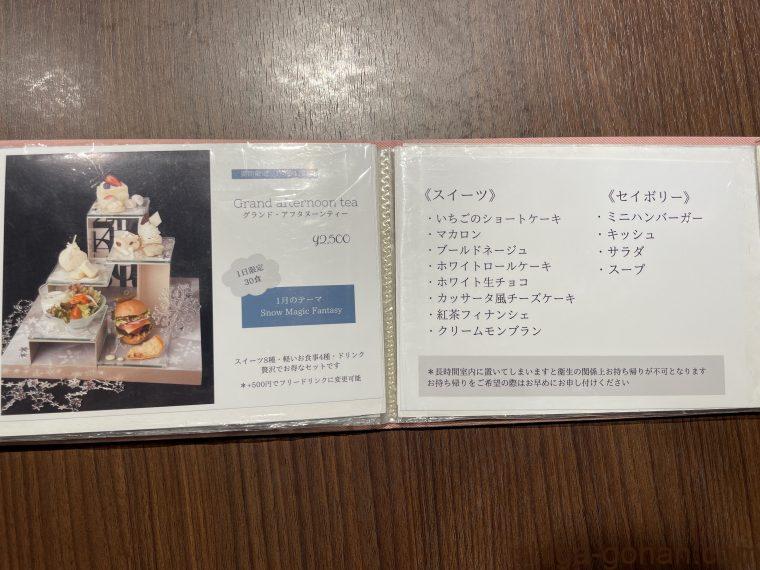 Grand afternoon tea
グランド・アフタヌーンティー
¥2,500
1日限定
30食
1月のテーマ
Snow Magic Fantasy
スイーツ8種・軽いお食事4種・ドリンク
贅沢でお得なセットです
＊+500円でフリードリンクに変更可能
《スイーツ》
・いちごのショートケーキ
・マカロン
・ブールドネージュ
・ホワイトロールケーキ
・ホワイト生チョコ
・カッサータ風チーズケーキ
・紅茶フィナンシェ
・クリームモンブラン
《セイボリー》
・ミニハンバーガー
・キッシュ
・サラダ
・スープ
＊長時間室内に置いてしまいますと衛生の関係上お持ち帰りが不可となります
お持ち帰りをご希望の際はお早めにお申し付けください